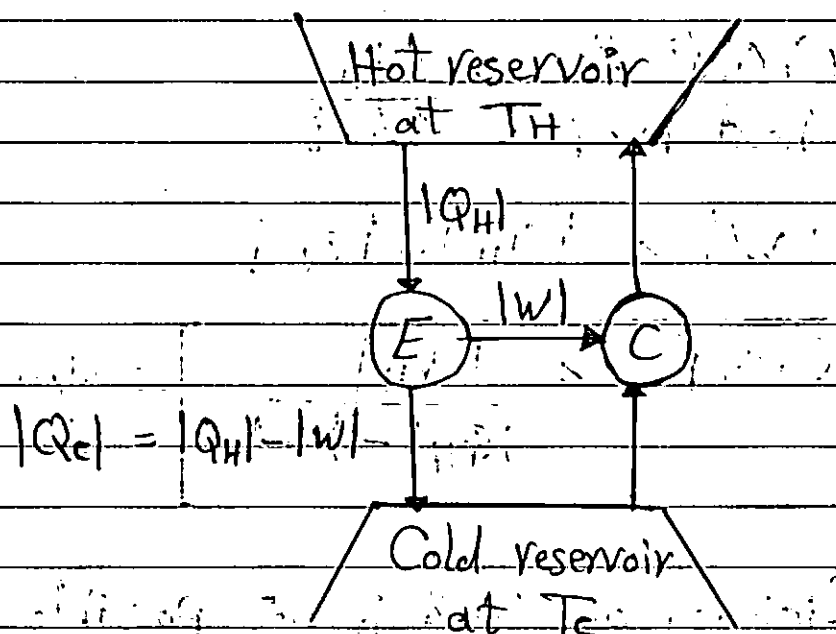 Hot reservoir
at T_H
|Q_H|
|W|
E
C
|Q_c| = |Q_H| - |W|
Cold reservoir
at T_c